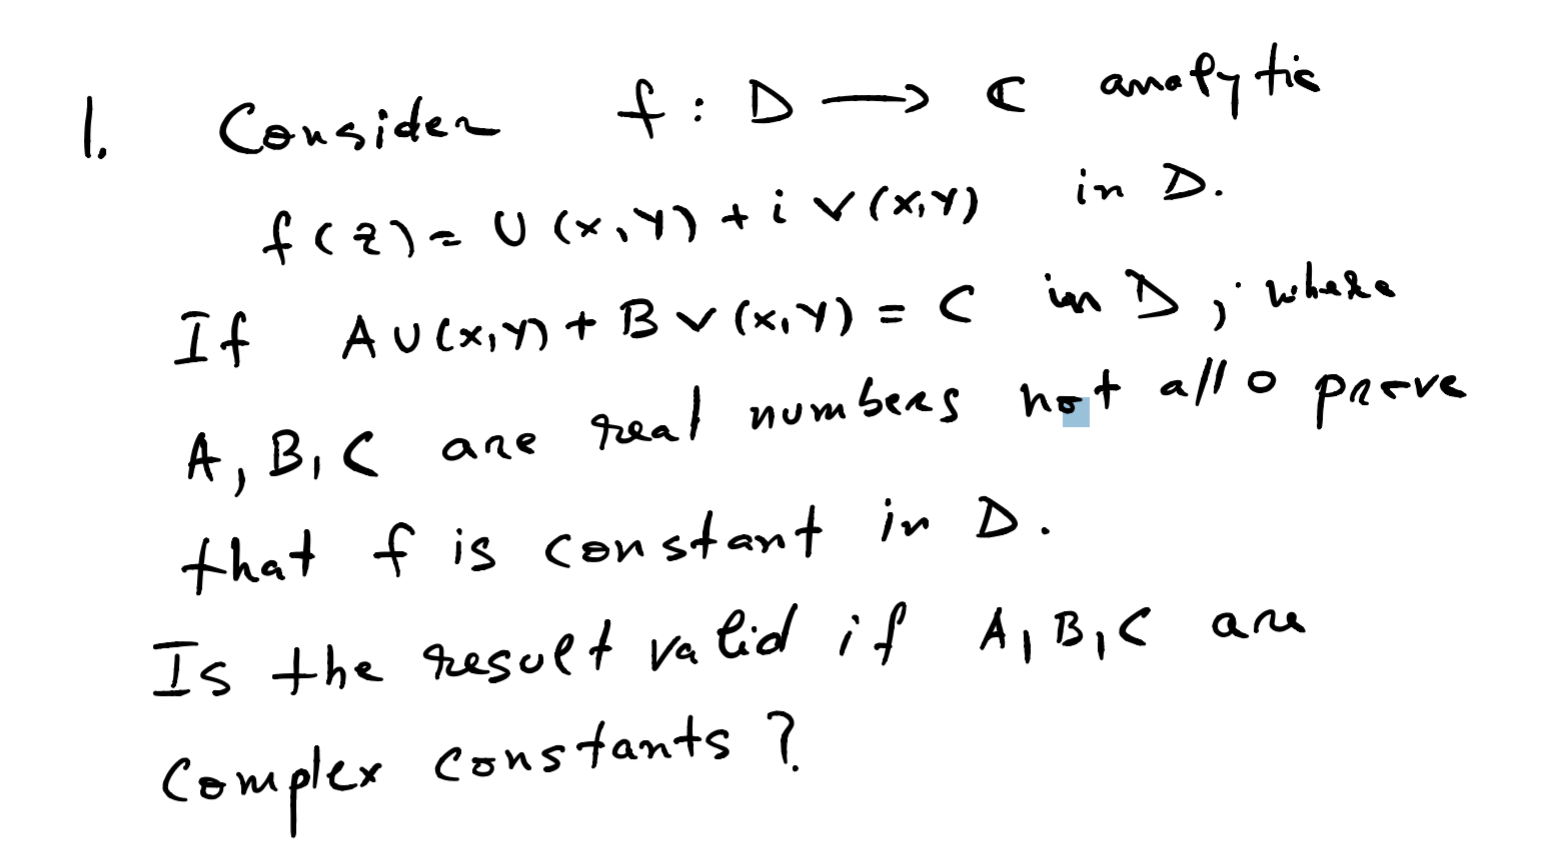 1. Consider f : D → ℂ analytic
f(z) = U(x,y) + i V(x,y) in D.
If AU(x,y) + BV(x,y) = C in D, where
A, B, C are real numbers not all 0 prove
that f is constant in D.
Is the result valid if A, B, C are
complex constants?